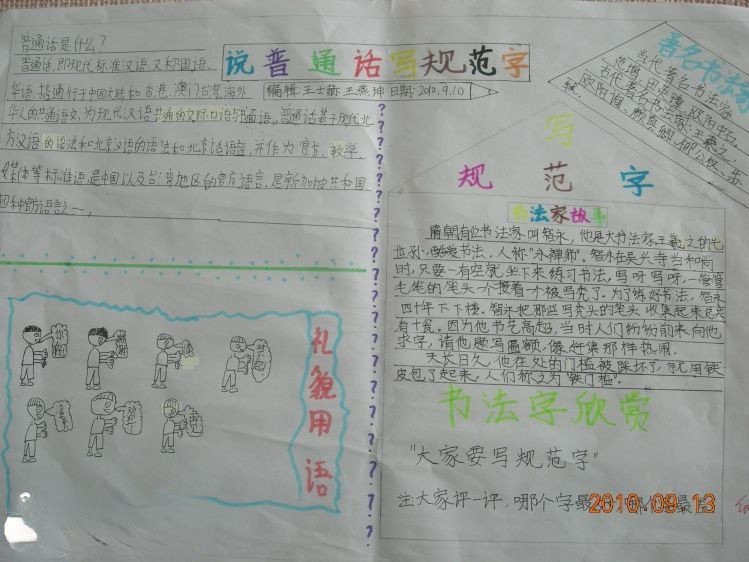 说普通话写规范字
编辑:王士茹 王燕坤 日期:2010.9.10
普通话是什么?
普通话,即现代标准汉语,又称国语、
华语,指通行于中国大陆和香港、澳门台湾、海外
华人的共通语文,为现代汉语共通的交际口语与书面语。普通话基于现代北
方汉语的语法和北京汉语的语法和北京话语言,并作为官方、教学、
媒体等标准语,是中国以及台湾地区的官方语言,是新加坡共和国
四种官方语言之一。
礼貌用语
著名书法家
当代著名书法家
范增、田英章、欧阳中石。
古代著名书法家:王羲之、
欧阳询、颜真卿、柳公权、苏
轼。
写
规 范 字
书法家故事
隋朝有位书法家叫智永,他是大书法家王羲之的七
世孙,酷爱书法,人称"永禅师"。智永在吴兴寺当和尚
时,只要一有空就坐下来练习书法,写呀写呀,一管管
毛笔的笔头一个接着一个被写秃了。为了练好书法,智永
四十年不下楼。智永把那些写秃头的笔头收集起来足足
有十瓮。因为他书艺高超,当时人们纷纷前来向他
求字,请他题写匾额,像赶集那样热闹。
天长日久,他在处的门槛被踩坏了,就用铁
皮包了起来,人们称之为"铁门槛"。
书法字欣赏
"大家要写规范字"
注大家评一评,哪个字最好,哪个字最
2010.09.13